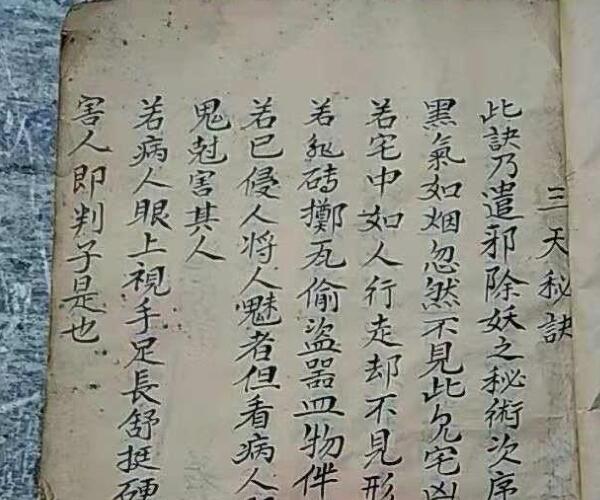 三天秘訣
此訣乃遣邪除妖之秘術次序
黑氣如烟忽然不見此宅凶
若宅中如人行走却不見形
若飛磚擲瓦偷盜器皿物件
若已侵人将人魘者但看病人
鬼尅害其人
若病人眼上視手足長舒挺硬
害人即判子是也